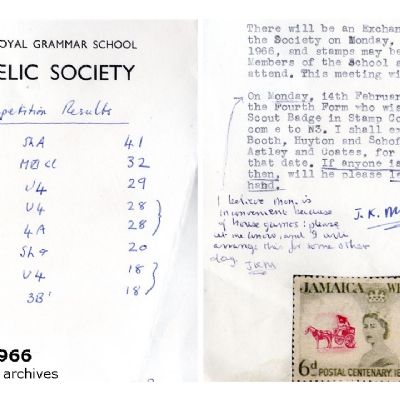 OYAL GRAMMAR SCHOOL
ELIC SOCIETY
petition Results
Sh A 41
32
U4 29
U4 28
4A 28
20
U4 18
3B 18
966
archives
There will be an Exchan
the Society on Monday.
1966, and stamps may be
Members of the School a
attend. This meeting wi
On Monday, 14th Februar
the Fourth Form who wis
Scout Badge in Stamp Co
come to N3. I shall ex
Booth, Huyton and Schof
Astley and Coates, for
that date. If anyone is
then, will be please le
hand.
I believe Mon. is
inconvenient because
of House games: please
let me know, and I will
arrange this for some other
day. JKM
J. K. M
JAMAICA WE
6d POSTAL CENTENARY, 18